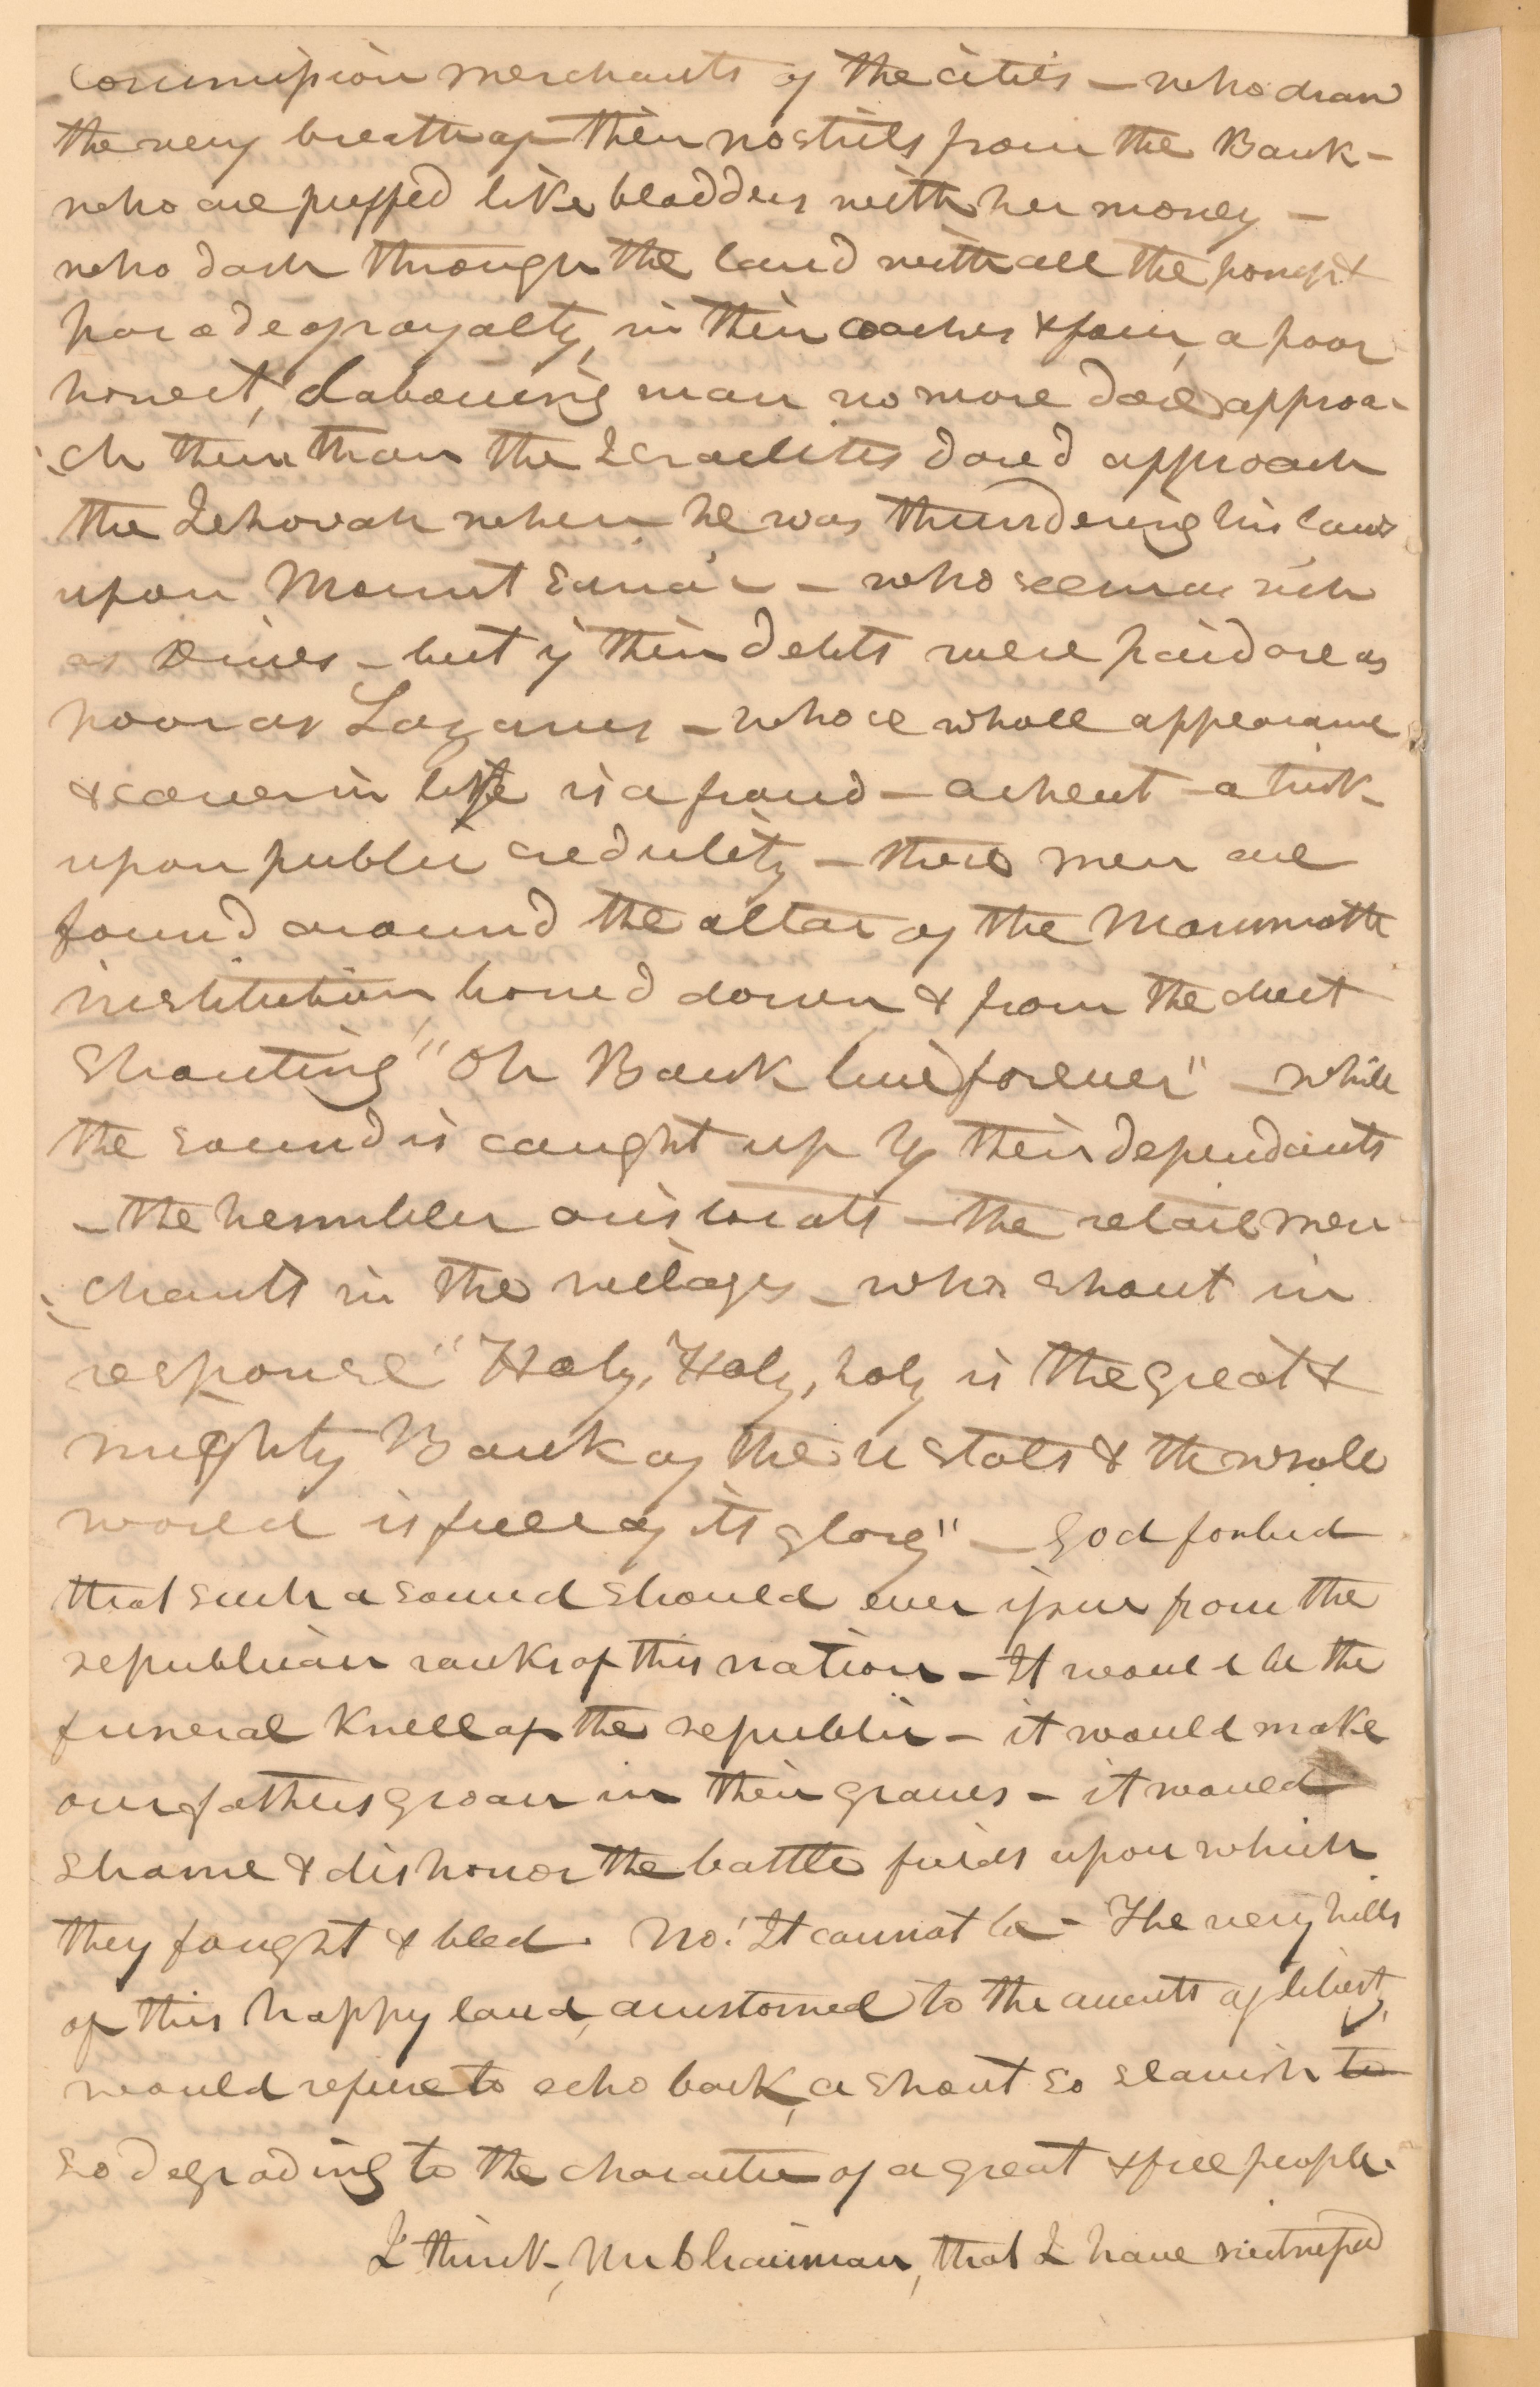 commission merchants of the cities – who draw
the very breath of their nostrils from the Bank –
who are puffed like bladders with her money –
who dash through the land with all the pomp &
parade of royalty, in their coaches & four, a poor
honest, labouring man no more dare approa-
-ch them than the Israelites dared approach
the Jehovah when he was thundering his laws
upon Mount Sinai – who seem as rich
as Dives – but if their debts were paid are as
poor as Lazarus – whose whole appearance
& career in life is a fraud – a cheat – a trick –
upon public credulity – these men are
found around the altar of the Mammoth
institution, bowed down & from the dust
shouting "Oh Bank live forever" – while
the sound is caught up by their dependants
– the humbler aristocrats – the retail mer
-chants in the villages – who shout in
response "Holy, Holy, holy is the great &
mighty Bank of the U States & the whole
world is full of its glory" – God forbid
that such a sound should ever issue from the
republican ranks of this nation – It would be the
funeral knell of the republic – it would make
our fathers groan in their graves – it would
shame & dishonor the battle fields upon which
they fought & bled. No! It cannot be – The very hills
of this happy land, accustomed to the accents of liberty,
would refuse to echo back, a shout so slavish to
so degrading to the character of a great & free people.
I think, Mr Chairman, that I have witnessed